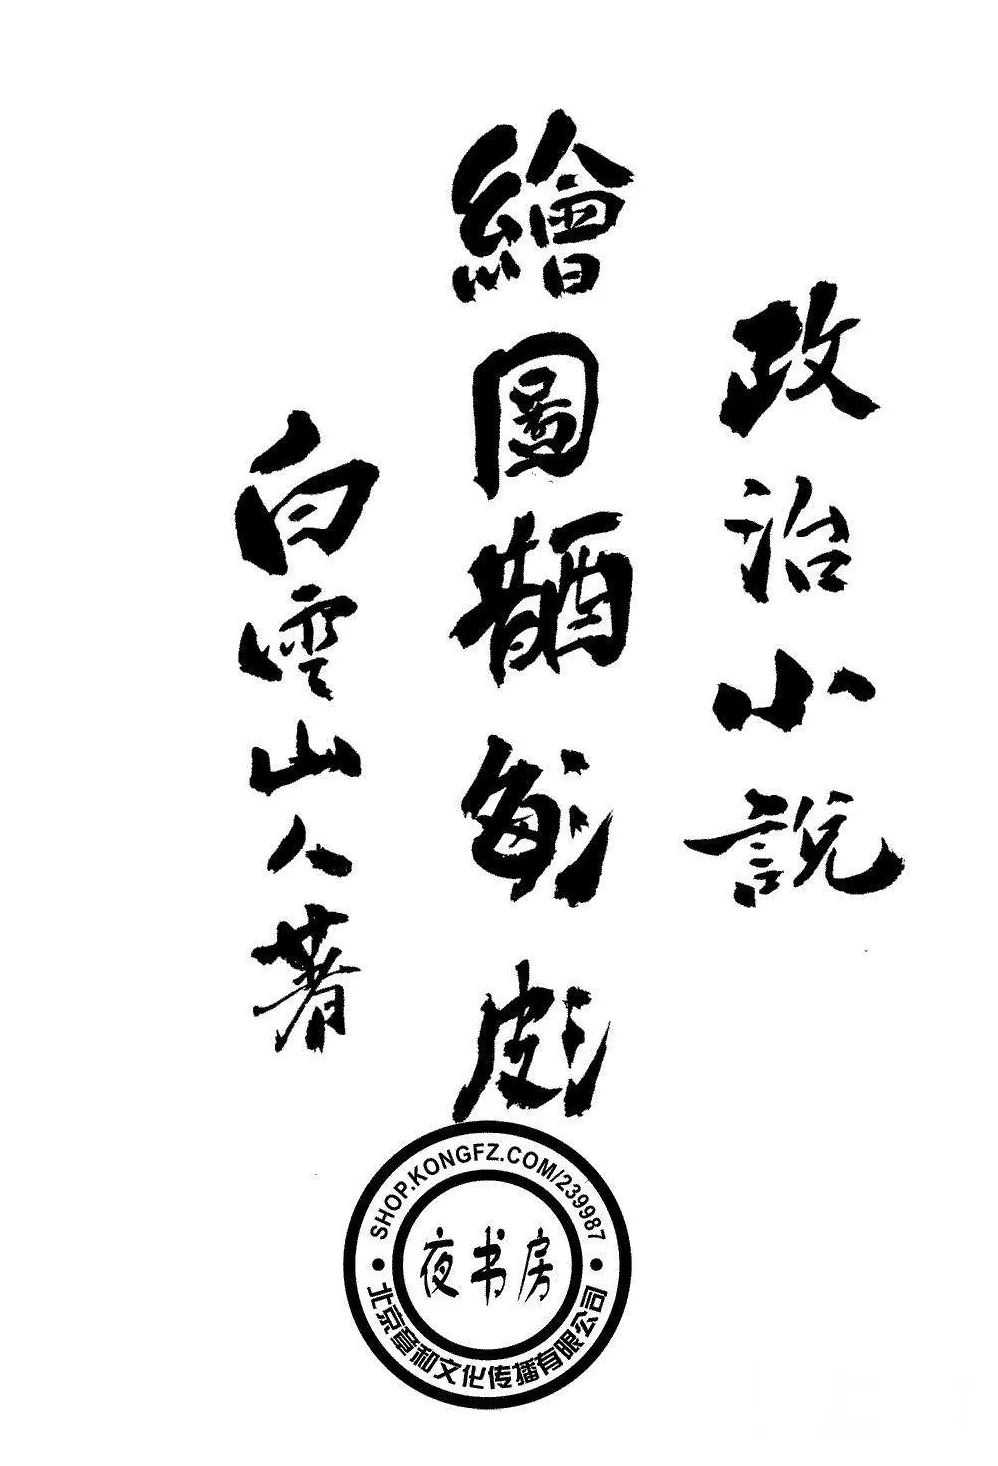 政治小說
繪圖醋海波
白雲山人著
SHOP.KONGFZ.COM/239987
夜书房
北京章和文化传播有限公司